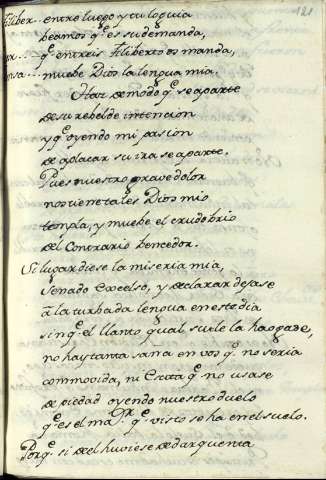 121
Filiber. entre luego y tu loguia
beamos q.e es su demanda,
q.e entreis Filiberto os manda,
muebe Dios la lengua mia.
Haz de modo q.e se aparte
de su rebelde intencion
y q.e oyendo mi pasion
de aplacar su ira se aparte.
Pues nuestro grave dolor
nos tiene tales Dios mio
templa, y muebe el crudo brio
del Contrario bencedor.
Si lugar diese la miseria mia,
Senado excelso, y declarar dejase
a la turbada lengua en este dia
sin q.e el llanto qual suele la haogase,
no hay tanta saña en vos q.e no seria
commovida, ni Escita q.e no usase
de piedad oyendo nuestro duelo
q.e es el ma.or q.e visto se ha en el suelo.
Porq.e si del huviese de dar quenta